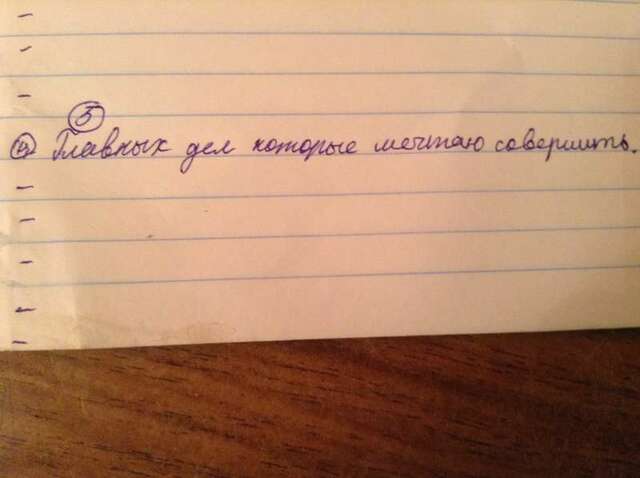 5
Главных дел которые мечтаю совершить.